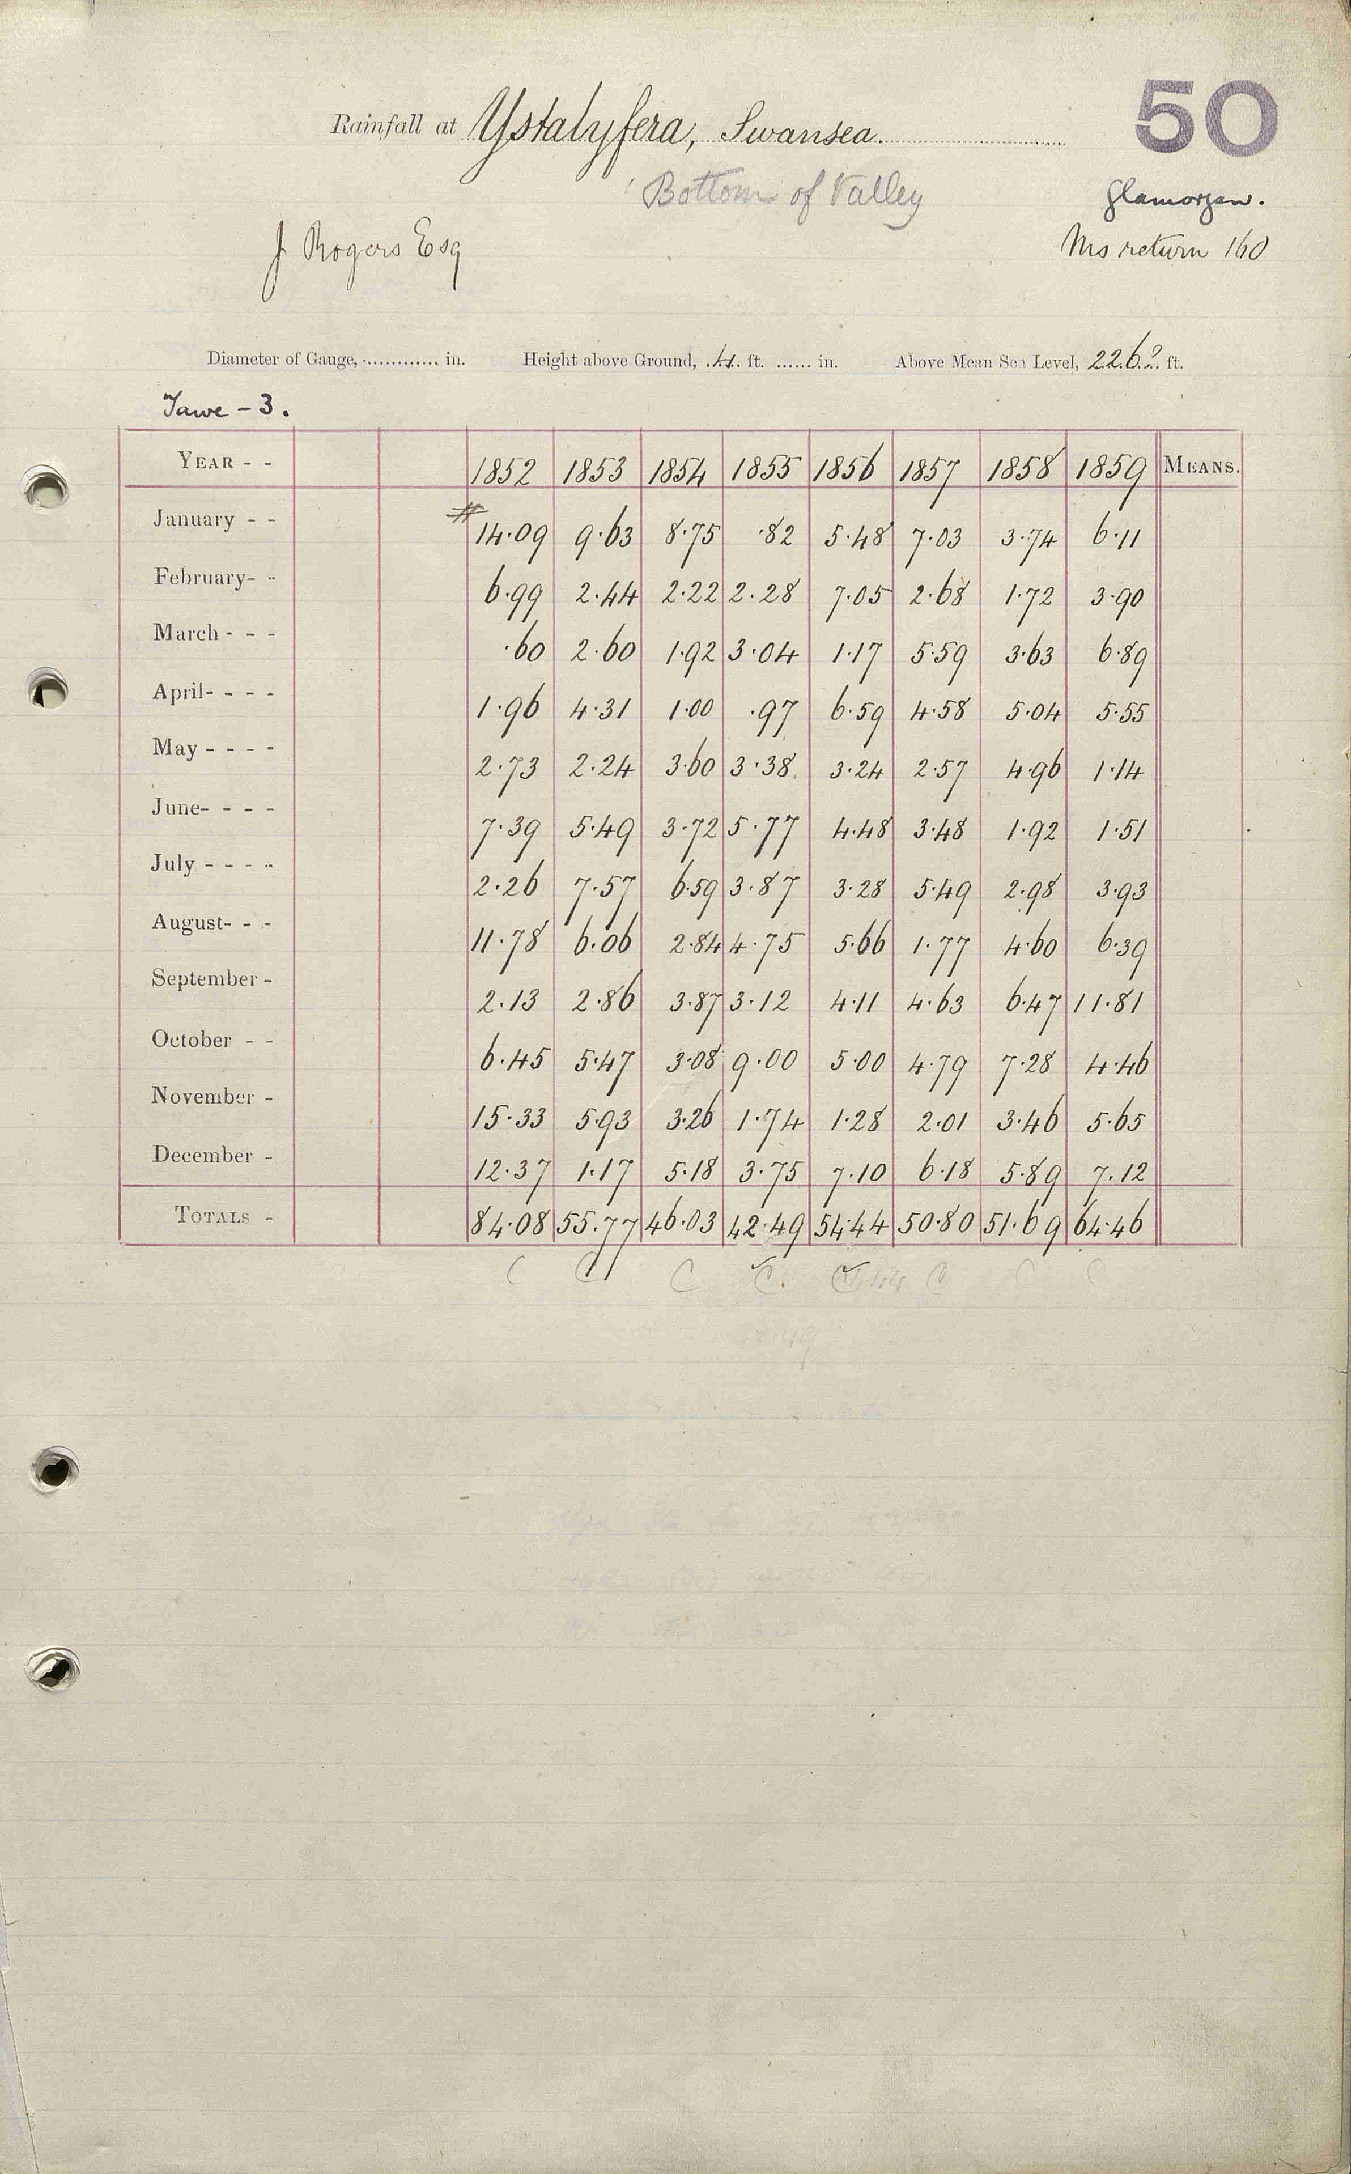 50
Rainfall at Ystalyfera, Swansea.
Bottom of Valley
Glamorgan.
J Rogers Esq
Ms return 160
Diameter of Gauge, ............ in. Height above Ground, 4 ft. ...... in. Above Mean Sea Level, 226? ft.
Tawe - 3.
YEAR - - 1852 1853 1854 1855 1856 1857 1858 1859 MEANS.
January - - # 14.09 9.63 8.75 .82 5.48 7.03 3.74 6.11
February- - 6.99 2.44 2.22 2.28 7.05 2.68 1.72 3.90
March - - - .60 2.60 1.92 3.04 1.17 5.59 3.63 6.89
April- - - - 1.96 4.31 1.00 .97 6.59 4.58 5.04 5.55
May - - - - 2.73 2.24 3.60 3.38 3.24 2.57 4.96 1.14
June- - - - 7.39 5.49 3.72 5.77 4.48 3.48 1.92 1.51
July - - - - 2.26 7.57 6.59 3.87 3.28 5.49 2.98 3.93
August- - - 11.78 6.06 2.84 4.75 5.66 1.77 4.60 6.39
September - 2.13 2.86 3.87 3.12 4.11 4.63 6.47 11.81
October - - 6.45 5.47 3.08 9.00 5.00 4.79 7.28 4.46
November - 15.33 5.93 3.26 1.74 1.28 2.01 3.46 5.65
December - 12.37 1.17 5.18 3.75 7.10 6.18 5.89 7.12
TOTALS - 84.08 55.77 46.03 42.49 54.44 50.80 51.69 64.46
C C C C. C C C C